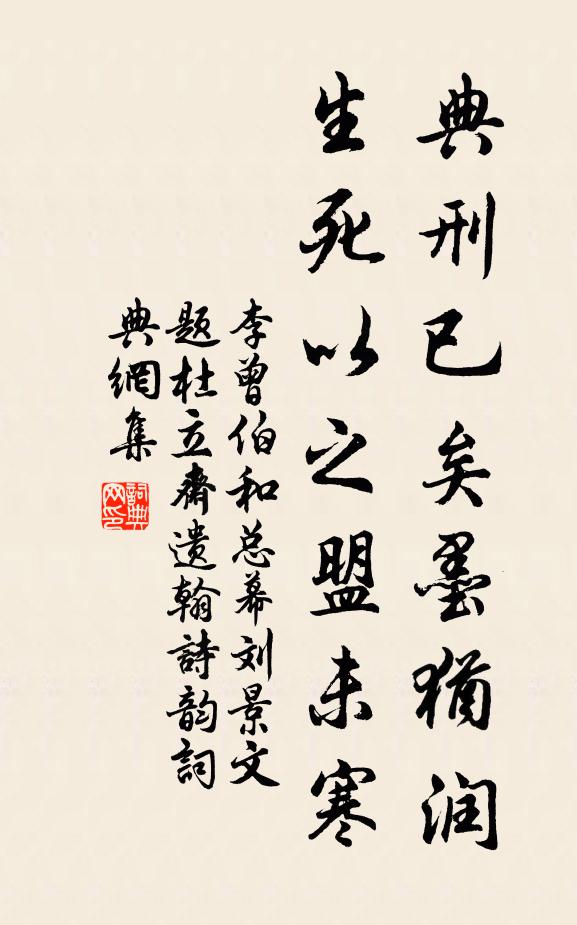 典刑已矣墨犹润
生死以之盟未寒
李曾伯和总幕刘景文
题杜立斋遗翰詩韵詞
典網集
詞典网印